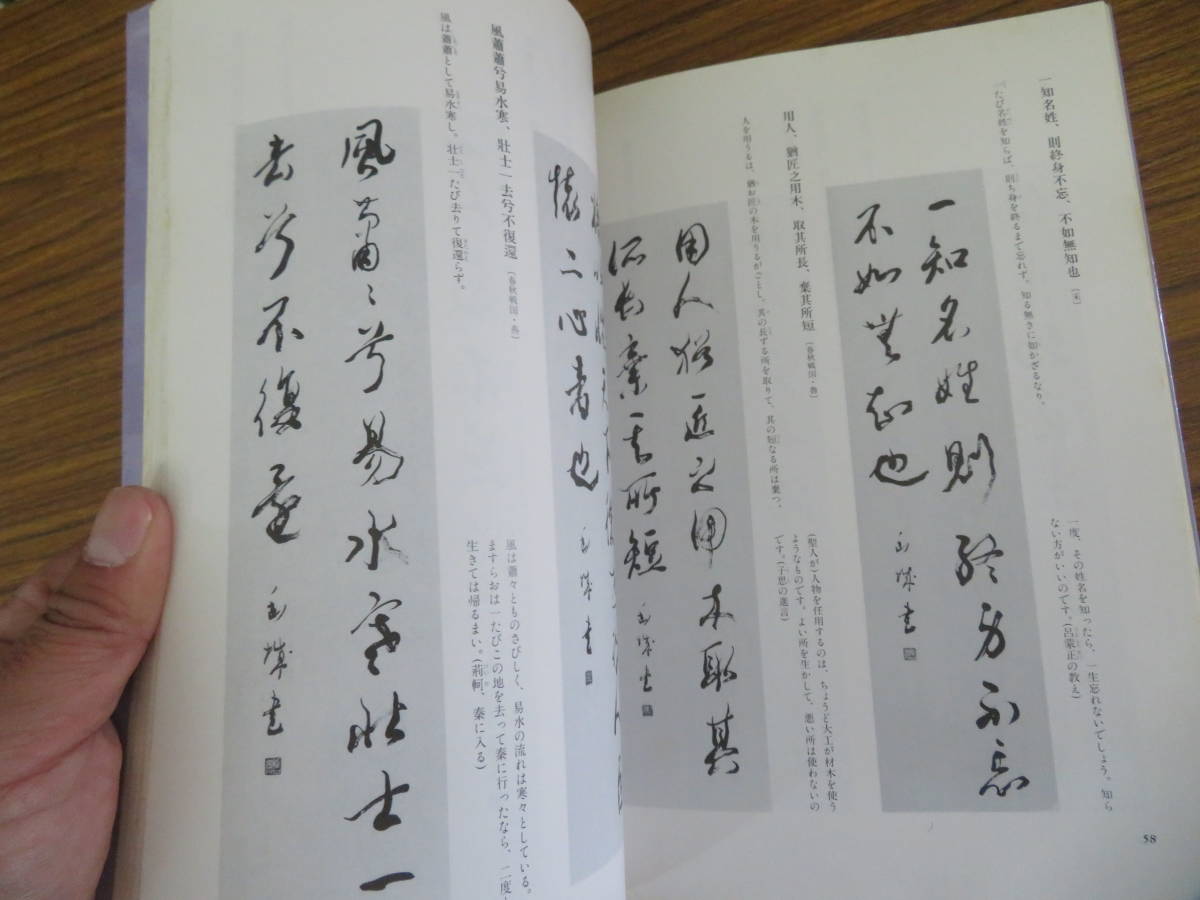 一知名姓、則終身不忘、不如無知也（宋）
一たび名姓を知らば、則ち身を終るまで忘れず。知る無きに如かざるなり。
一知名姓則終身不忘
不如無知也
書
一度、その姓名を知ったら、一生忘れないでしょう。知ら
ない方がいいのです。（呂蒙正の教え）
用人、猶匠之用木、取其所長、棄其所短（春秋戦国・魯）
人を用うるは、猶お匠の木を用うるがごとし、其の長ずる所を取りて、其の短なる所は棄つ。
用人猶匠之用木取其
所長棄其所短
書
（聖人が）人物を任用するのは、ちょうど大工が材木を使う
ようなものです。よい所を生かして、悪い所は使わないの
です。（子思の進言）
58
懐二心者也
書
風蕭蕭兮易水寒、壯士一去兮不復還（春秋戦国・燕）
風は蕭蕭として易水寒し。壮士一たび去りて復還らず。
風蕭〻兮易水寒壯士一
去兮不復還
書
風は蕭々とものさびしく、易水の流れは寒々としている。
ますらおは一たびこの地を去って秦に行ったなら、二度
生きては帰るまい。（荊軻、秦に入る）